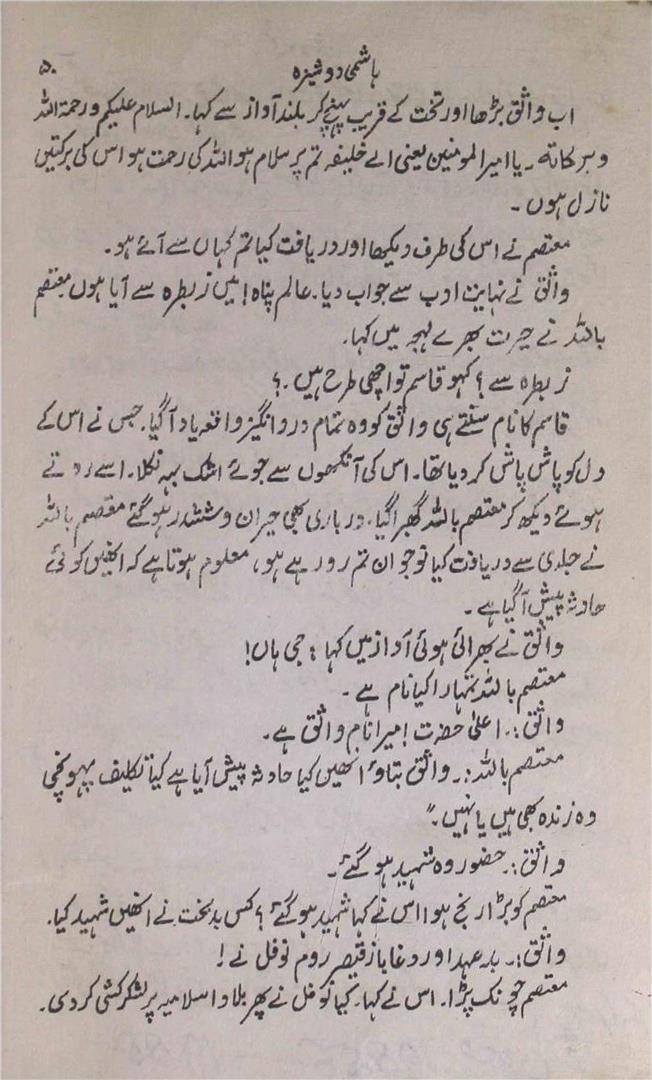 ہاشمی دوشیزہ
۵۰
اب واثق بڑھا اور تخت کے قریب پہنچ کر بلند آواز سے کہا۔ السلام علیکم ورحمۃ اللہ
وبرکاتہ۔ یا امیر المومنین یعنی اے خلیفہ تم پر سلام ہو اللہ کی رحمت ہو اس کی برکتیں
نازل ہوں۔
معتصم نے اس کی طرف دیکھا اور دریافت کیا تم کہاں سے آئے ہو۔
واثق نے نہایت ادب سے جواب دیا۔ عالم پناہ! میں زبطرہ سے آیا ہوں معتصم
باللہ نے حیرت بھرے لہجہ میں کہا۔
زبطرہ سے؟ کہو قاسم تو اچھی طرح ہیں۔؟
قاسم کا نام سنتے ہی واثق کو وہ تمام درد انگیز واقعہ یاد آگیا۔ جس نے اس کے
دل کو پاش پاش کر دیا تھا۔ اس کی آنکھوں سے جوئے اشک بہہ نکلا۔ اسے روتے
ہوئے دیکھ کر معتصم باللہ گھبرا گیا۔ درباری بھی حیران و ششدر ہو گئے معتصم باللہ
نے جلدی سے دریافت کیا نوجوان تم رو رہے ہو، معلوم ہوتا ہے کہ انھیں کوئی
حادثہ پیش آگیا ہے۔
واثق نے بھرائی ہوئی آواز میں کہا؛ جی ہاں!
معتصم باللہ تمہارا کیا نام ہے۔
واثق:۔ اعلیٰ حضرت! میرا نام واثق ہے۔
معتصم باللہ:۔ واثق بتاؤ انھیں کیا حادثہ پیش آیا ہے کیا تکلیف پہونچی
وہ زندہ بھی ہیں یا نہیں۔"
واثق:۔ حضور وہ شہید ہو گئے۔
معتصم کو بڑا رنج ہوا اس نے کہا شہید ہو گئے؟ کس بدبخت نے انھیں شہید کیا۔
واثق:۔ بدعہد اور دغاباز قیصر روم نوفل نے!
معتصم چونک پڑا۔ اس نے کہا۔ کیا نوفل نے پھر بلاد اسلامیہ پر لشکر کشی کر دی۔